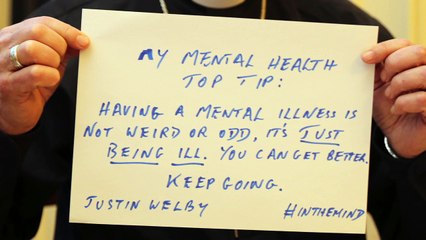 MY MENTAL HEALTH
TOP TIP:
HAVING A MENTAL ILLNESS IS
NOT WEIRD OR ODD, IT'S JUST
BEING ILL. YOU CAN GET BETTER.
KEEP GOING.
JUSTIN WELBY #INTHEMIND